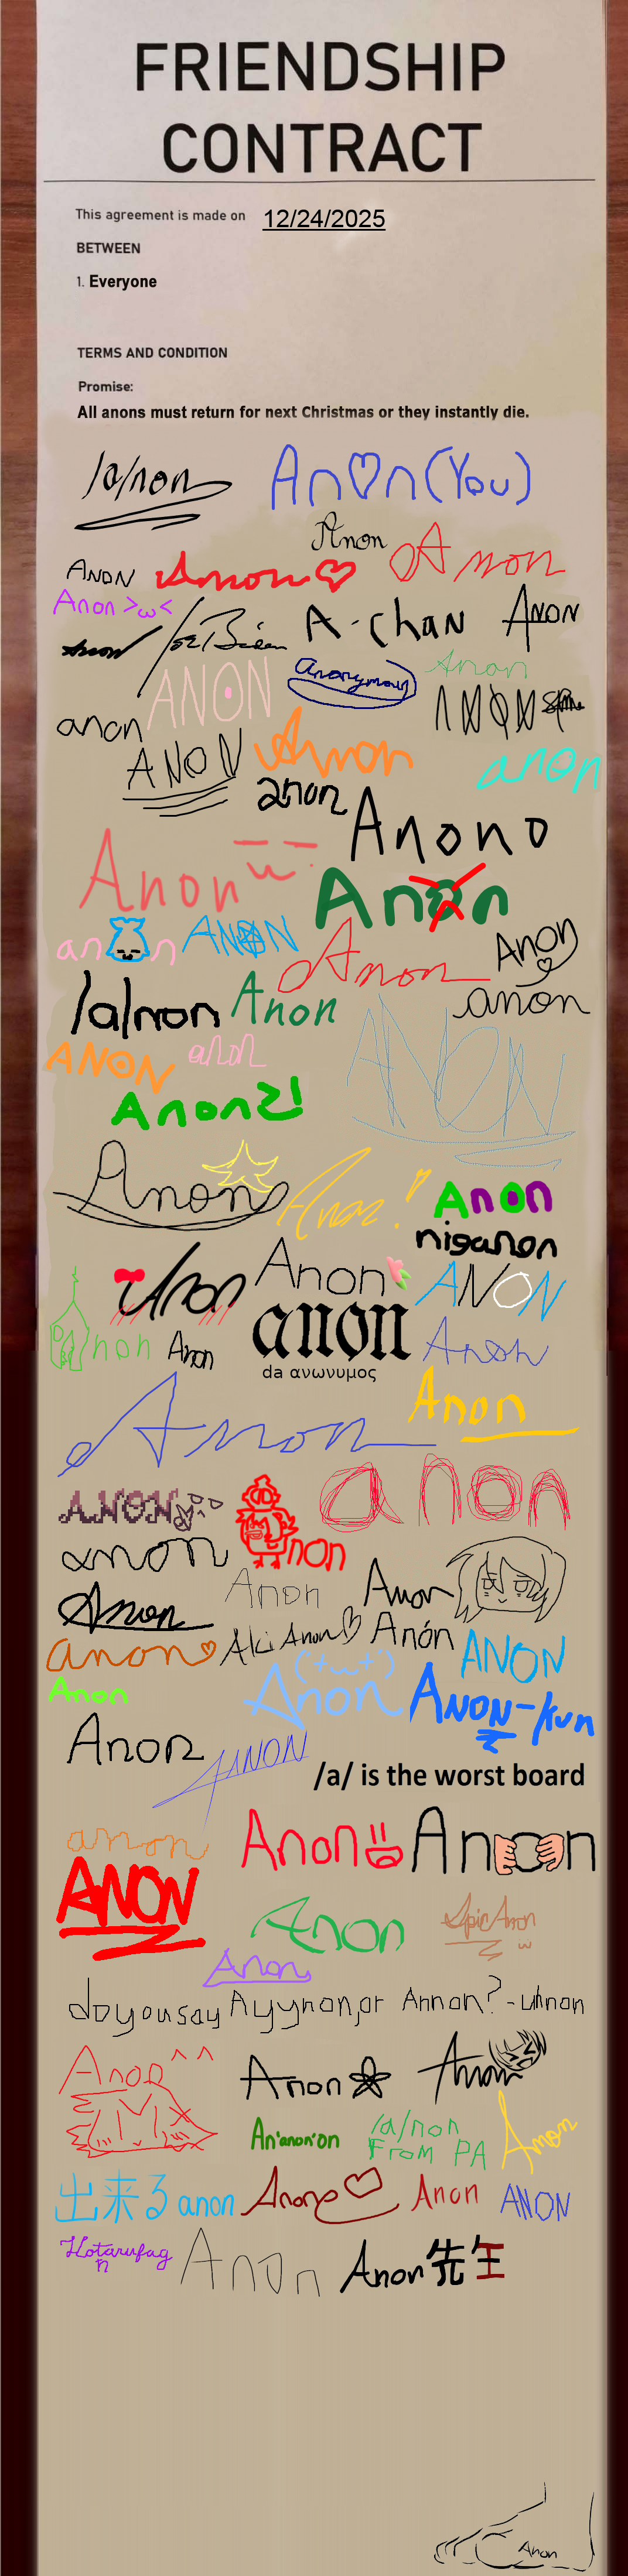 FRIENDSHIP
CONTRACT
This agreement is made on 12/24/2025
BETWEEN
1. Everyone
TERMS AND CONDITION
Promise:
All anons must return for next Christmas or they instantly die.
/a/non
An♡n (You)
Anon
Anon
ANON
Anon♡
Anon >ω<
Anon
Joe Biden
A-chan
ANON
ANON
Anonymous
Anon
anon
ANON
ANON
Anon
anon
anon
Anono
Anon
Anon
an n
ANON
Anon
Anon
/a/non
Anon
anon
ANON
anon
ANON
Anon2!
Anon
Anon!
Anon
niganon
Anon
Anon
ANON
non
Anon
anon
da ανωνυμος
Anon
Anon
Anon
ANON
non
anon
anon
Anon
Anon
Anon
anon♡
Aki Anon♡
Anón
ANON
Anon
Anon
ANON-kun
Anon
ANON
/a/ is the worst board
anon
Anon
Anon
ANON
Anon
Epic Anon
Anon
do you say Ayynon, or Annon? - uhnon
Anon^^
Anon
Anon
An'anon'on
/a/non
From PA
Anon
出来る anon
Anon♡
Anon
ANON
Hotarufag
Anon
Anon先生
Anon